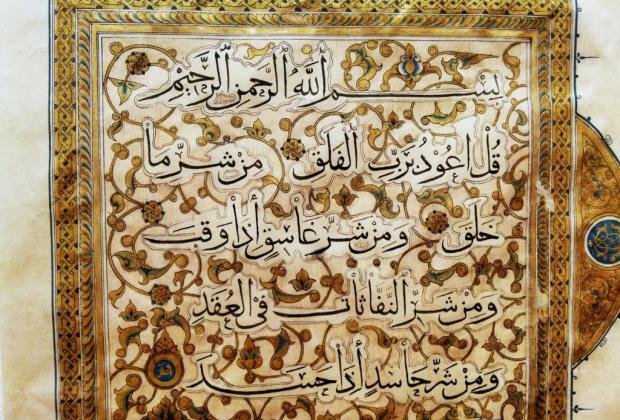 بِسْمِ اللَّهِ الرَّحْمَنِ الرَّحِيمِ
قُلْ اَعُوذُ بِرَبِّ الْفَلَقِ مِنْ شَرِّ مَا
خَلَقَ وَمِنْ شَرِّ غَاسِقٍ اِذَا وَقَبَ
وَمِنْ شَرِّ النَّفَّاثَاتِ فِى الْعُقَدِ
وَمِنْ شَرِّ حَاسِدٍ اِذَا حَسَدَ